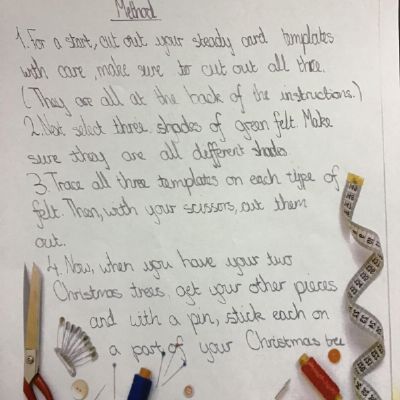 Method
1. For a start, cut out your steady card templates
with care, make sure to cut out all three.
(They are all at the back of the instructions.)
2. Next select three shades of green felt. Make
sure they are all different shades.
3. Trace all three templates on each type of
felt. Then, with your scissors, cut them
out.
4. Now, when you have your two
Christmas trees, get your other pieces
and with a pin, stick each on
a part of your Christmas tree